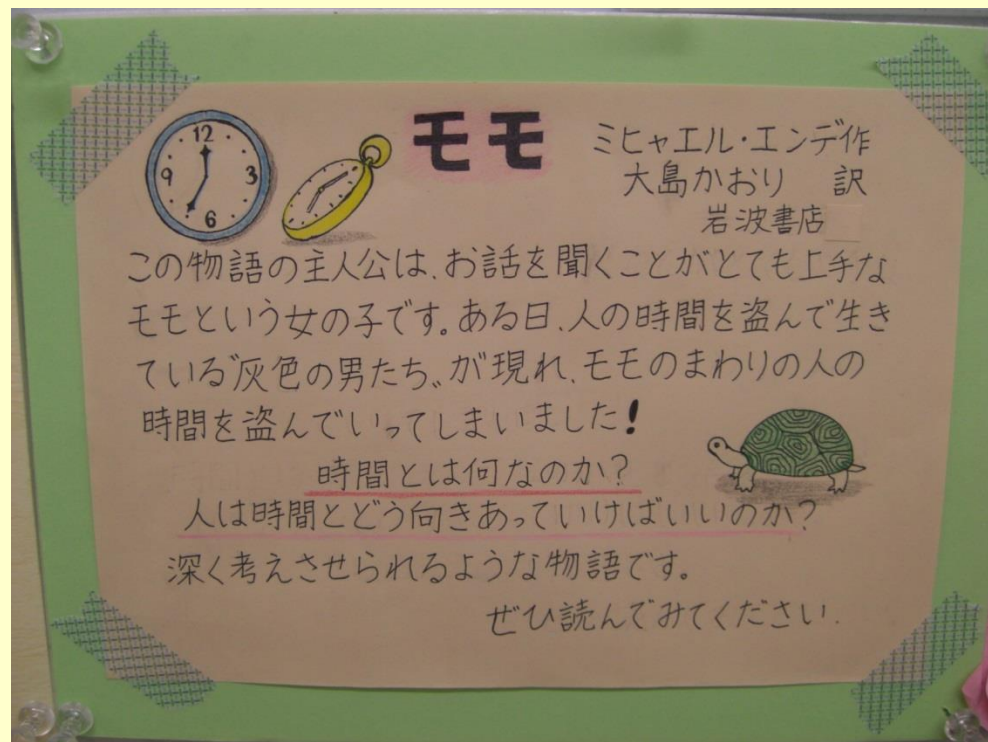 モモ
ミヒャエル・エンデ作
大島かおり 訳
岩波書店
この物語の主人公は、お話を聞くことがとても上手な
モモという女の子です。ある日、人の時間を盗んで生き
ている〝灰色の男たち〟が現れ、モモのまわりの人の
時間を盗んでいってしまいました!
時間とは何なのか?
人は時間とどう向きあっていけばいいのか?
深く考えさせられるような物語です。
ぜひ読んでみてください.
12
3
6
9